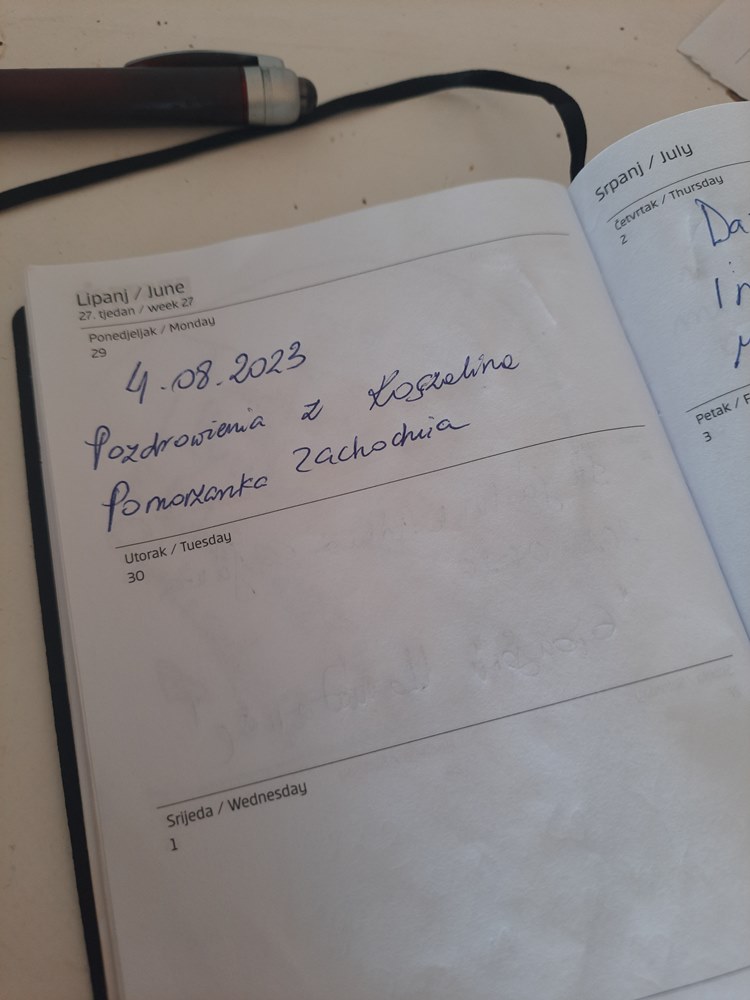 Lipanj / June
27. tjedan / week 27
Ponedjeljak / Monday
29
4.08.2023
Pozdrowienia z Koszalina
Pomorzanka Zachodnia
Utorak / Tuesday
30
Srijeda / Wednesday
1
Srpanj / July
Četvrtak / Thursday
2
Da
Petak / F
3